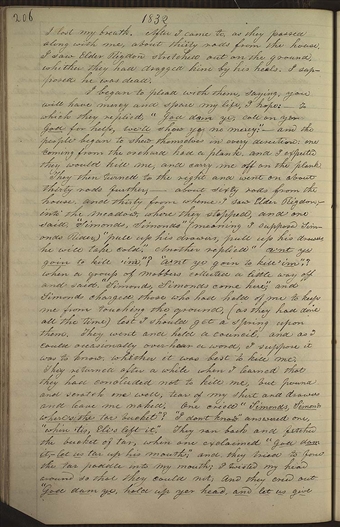 206
1832
I lost my breath. After I came to, as they passed
along with me, about thirty rods from the house,
I saw Elder Rigdon stretched out on the ground,
whither they had dragged him by his heels. I sup-
posed he was dead.
I began to plead with them, saying, you
will have mercy and spare my life, I hope: To
which they replied, "God dam ye, call on yer
God for help, we'll show ye no mercy;" and the
people began to show themselves in every direction: one
coming from the orchard had a plank, and I expected
they would kill me, and carry me off on the plank.
They then turned to the right and went on about
thirty rods further, about sixty rods from the
house, and thirty from where I saw Elder Rigdon,
into the meadow, where they stopped, and one
said "Simonds, Simonds" (meaning I suppose Sim-
onds Rider,) "pull up his drawers, pull up his drawers
he will take cold." Another replied "a'nt ye
goin to kill 'im"? "a'nt ye goin to kill 'im"?
when a group of mobbers collected a little way off
and said, "Simonds, Simonds come here;" and
Simond charged those who had hold of me to keep
me from touching the ground, (as they had done
all the time) lest I should get a spring upon
them. They went and held a council, and as I
could occasionally over hear a word, I suppose it
was to know, whether it was best to kill me.
They returned after a while when I learned that
they had concluded not to kill me, but pound
and scratch me well, tear off my shirt and drawers
and leave me naked. One cried "Simonds, Simonds
where's the tar bucket"? "I don't know" answered one,
"whar 'tis, Eli's left it". They ran back and fetched
the bucket of tar, when one exclaimed "God dam
it, let us tar up his mouth;" and they tried to force
the tar paddle into my mouth; I twisted my head
around so that they could not; And they cried out
"God dam ye, hold up yer head, and let us give